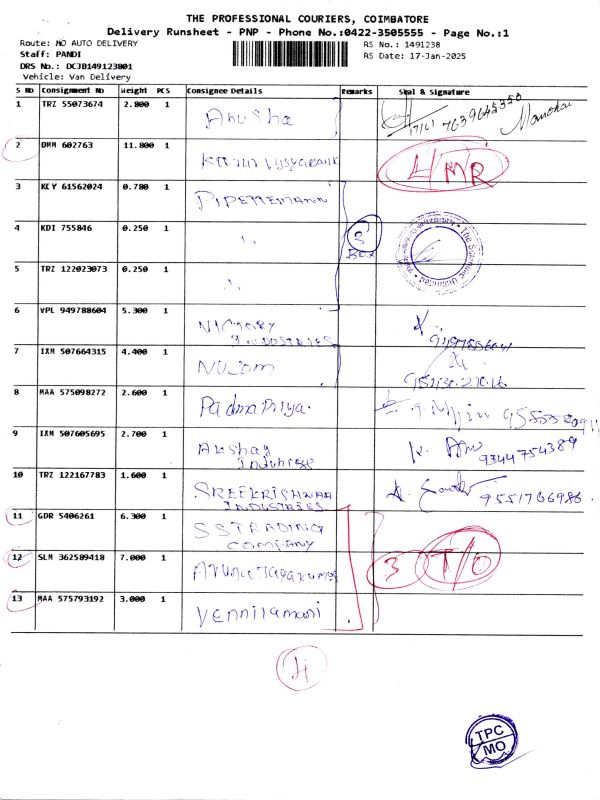 THE PROFESSIONAL COURIERS, COIMBATORE
Delivery Runsheet - PNP - Phone No.:0422-3505555 - Page No.:1
Route: MO AUTO DELIVERY
RS No.: 1491238
Staff: PANDI
RS Date: 17-Jan-2025
DRS No.: DCJB149123801
Vehicle: Van Delivery
S No Consignment No Weight PCS Consignee Details Remarks Seal & Signature
1 TRZ 55073674 2.800 1 Anusha 7639645350 Manohar
2 DMM 602763 11.800 1 Karur Vysya Bank 4/MR
3 KCY 61562024 0.780 1
4 KDI 755846 0.250 1 3 Box
5 TRZ 122023073 0.250 1
6 VPL 949788604 5.300 1 INDUSTRIES
7 IXM 507664315 4.400 1
8 MAA 575098272 2.600 1 Padma Priya
9 IXM 507605695 2.700 1 Akshay 9344754389
10 TRZ 122167783 1.600 1 SREEKRISHNAA INDUSTRIES 9551766986
11 GDR 5406261 6.300 1 SS TRADING COMPANY
12 SLM 362589418 7.000 1 3 T/O
13 MAA 575793192 3.000 1 Vennilamani
4
TPC
MO